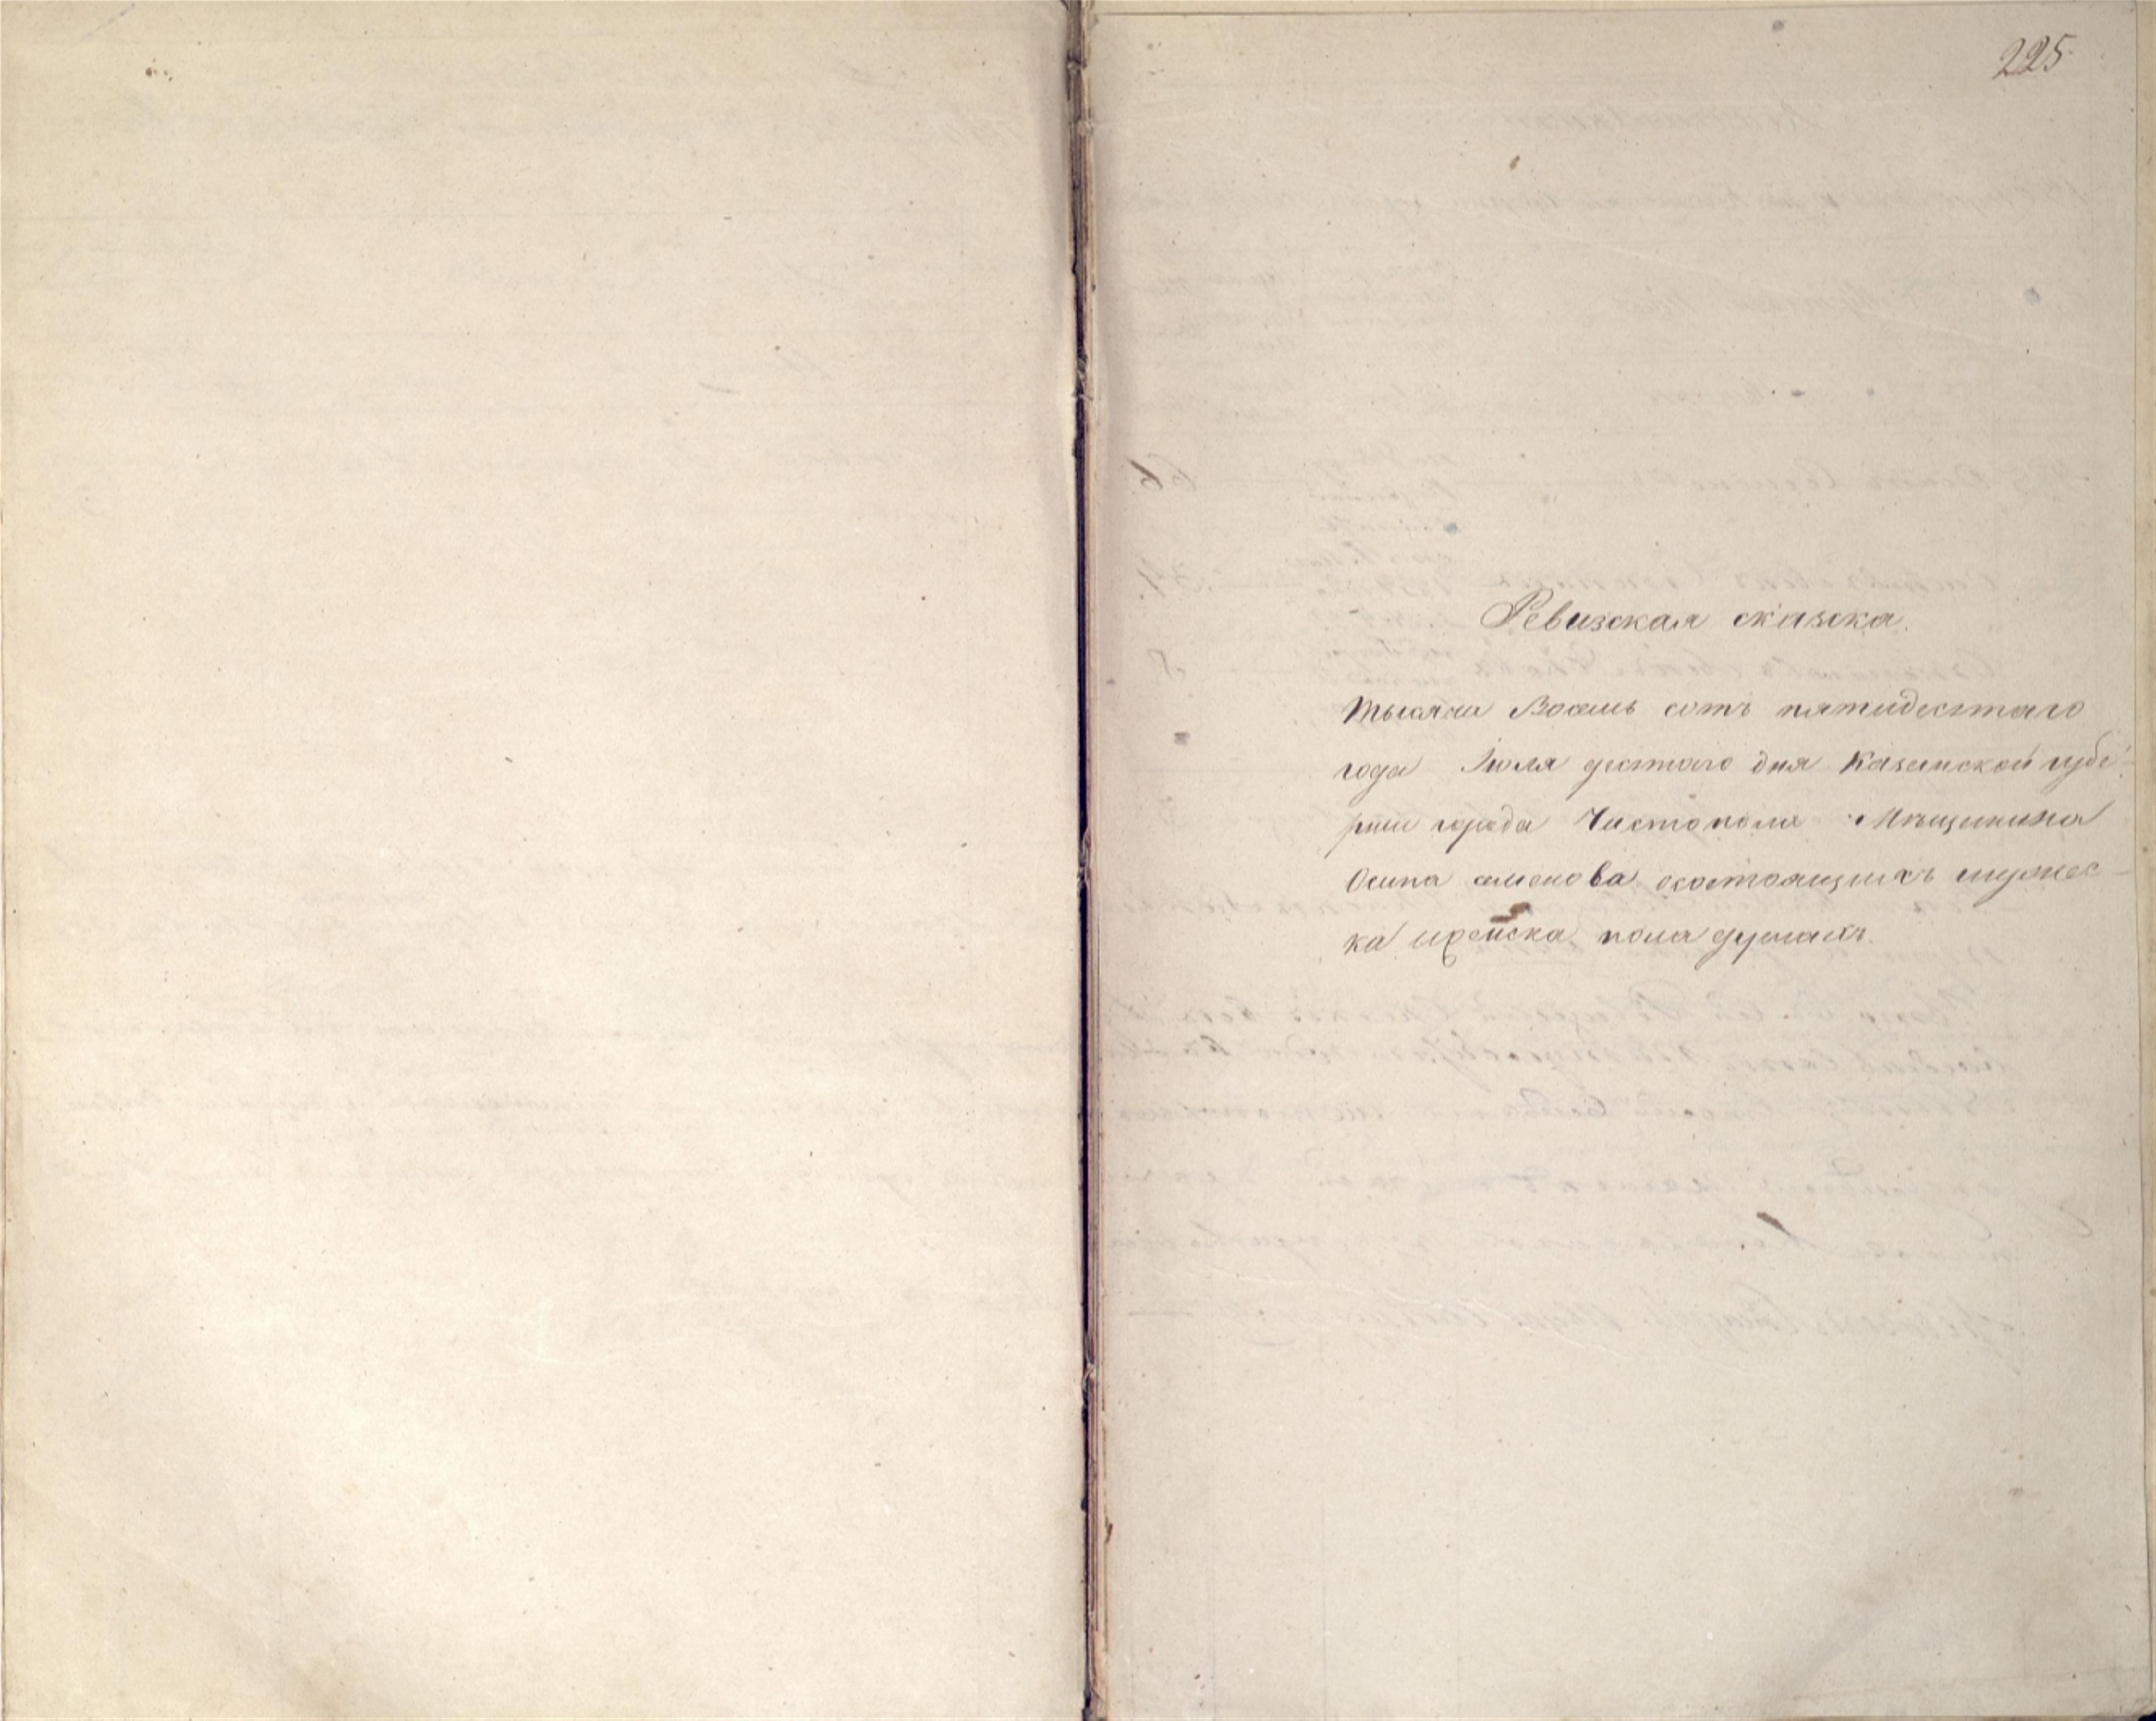 225
Ревизская сказка.
Тысяча Восемь сотъ пятидесятаго
года Іюля десятаго дня Казанской губе-
рніи города Чистополя Мѣщанина
Осипа семенова осостоящихъ мужес-
ка иженска пола душахъ.